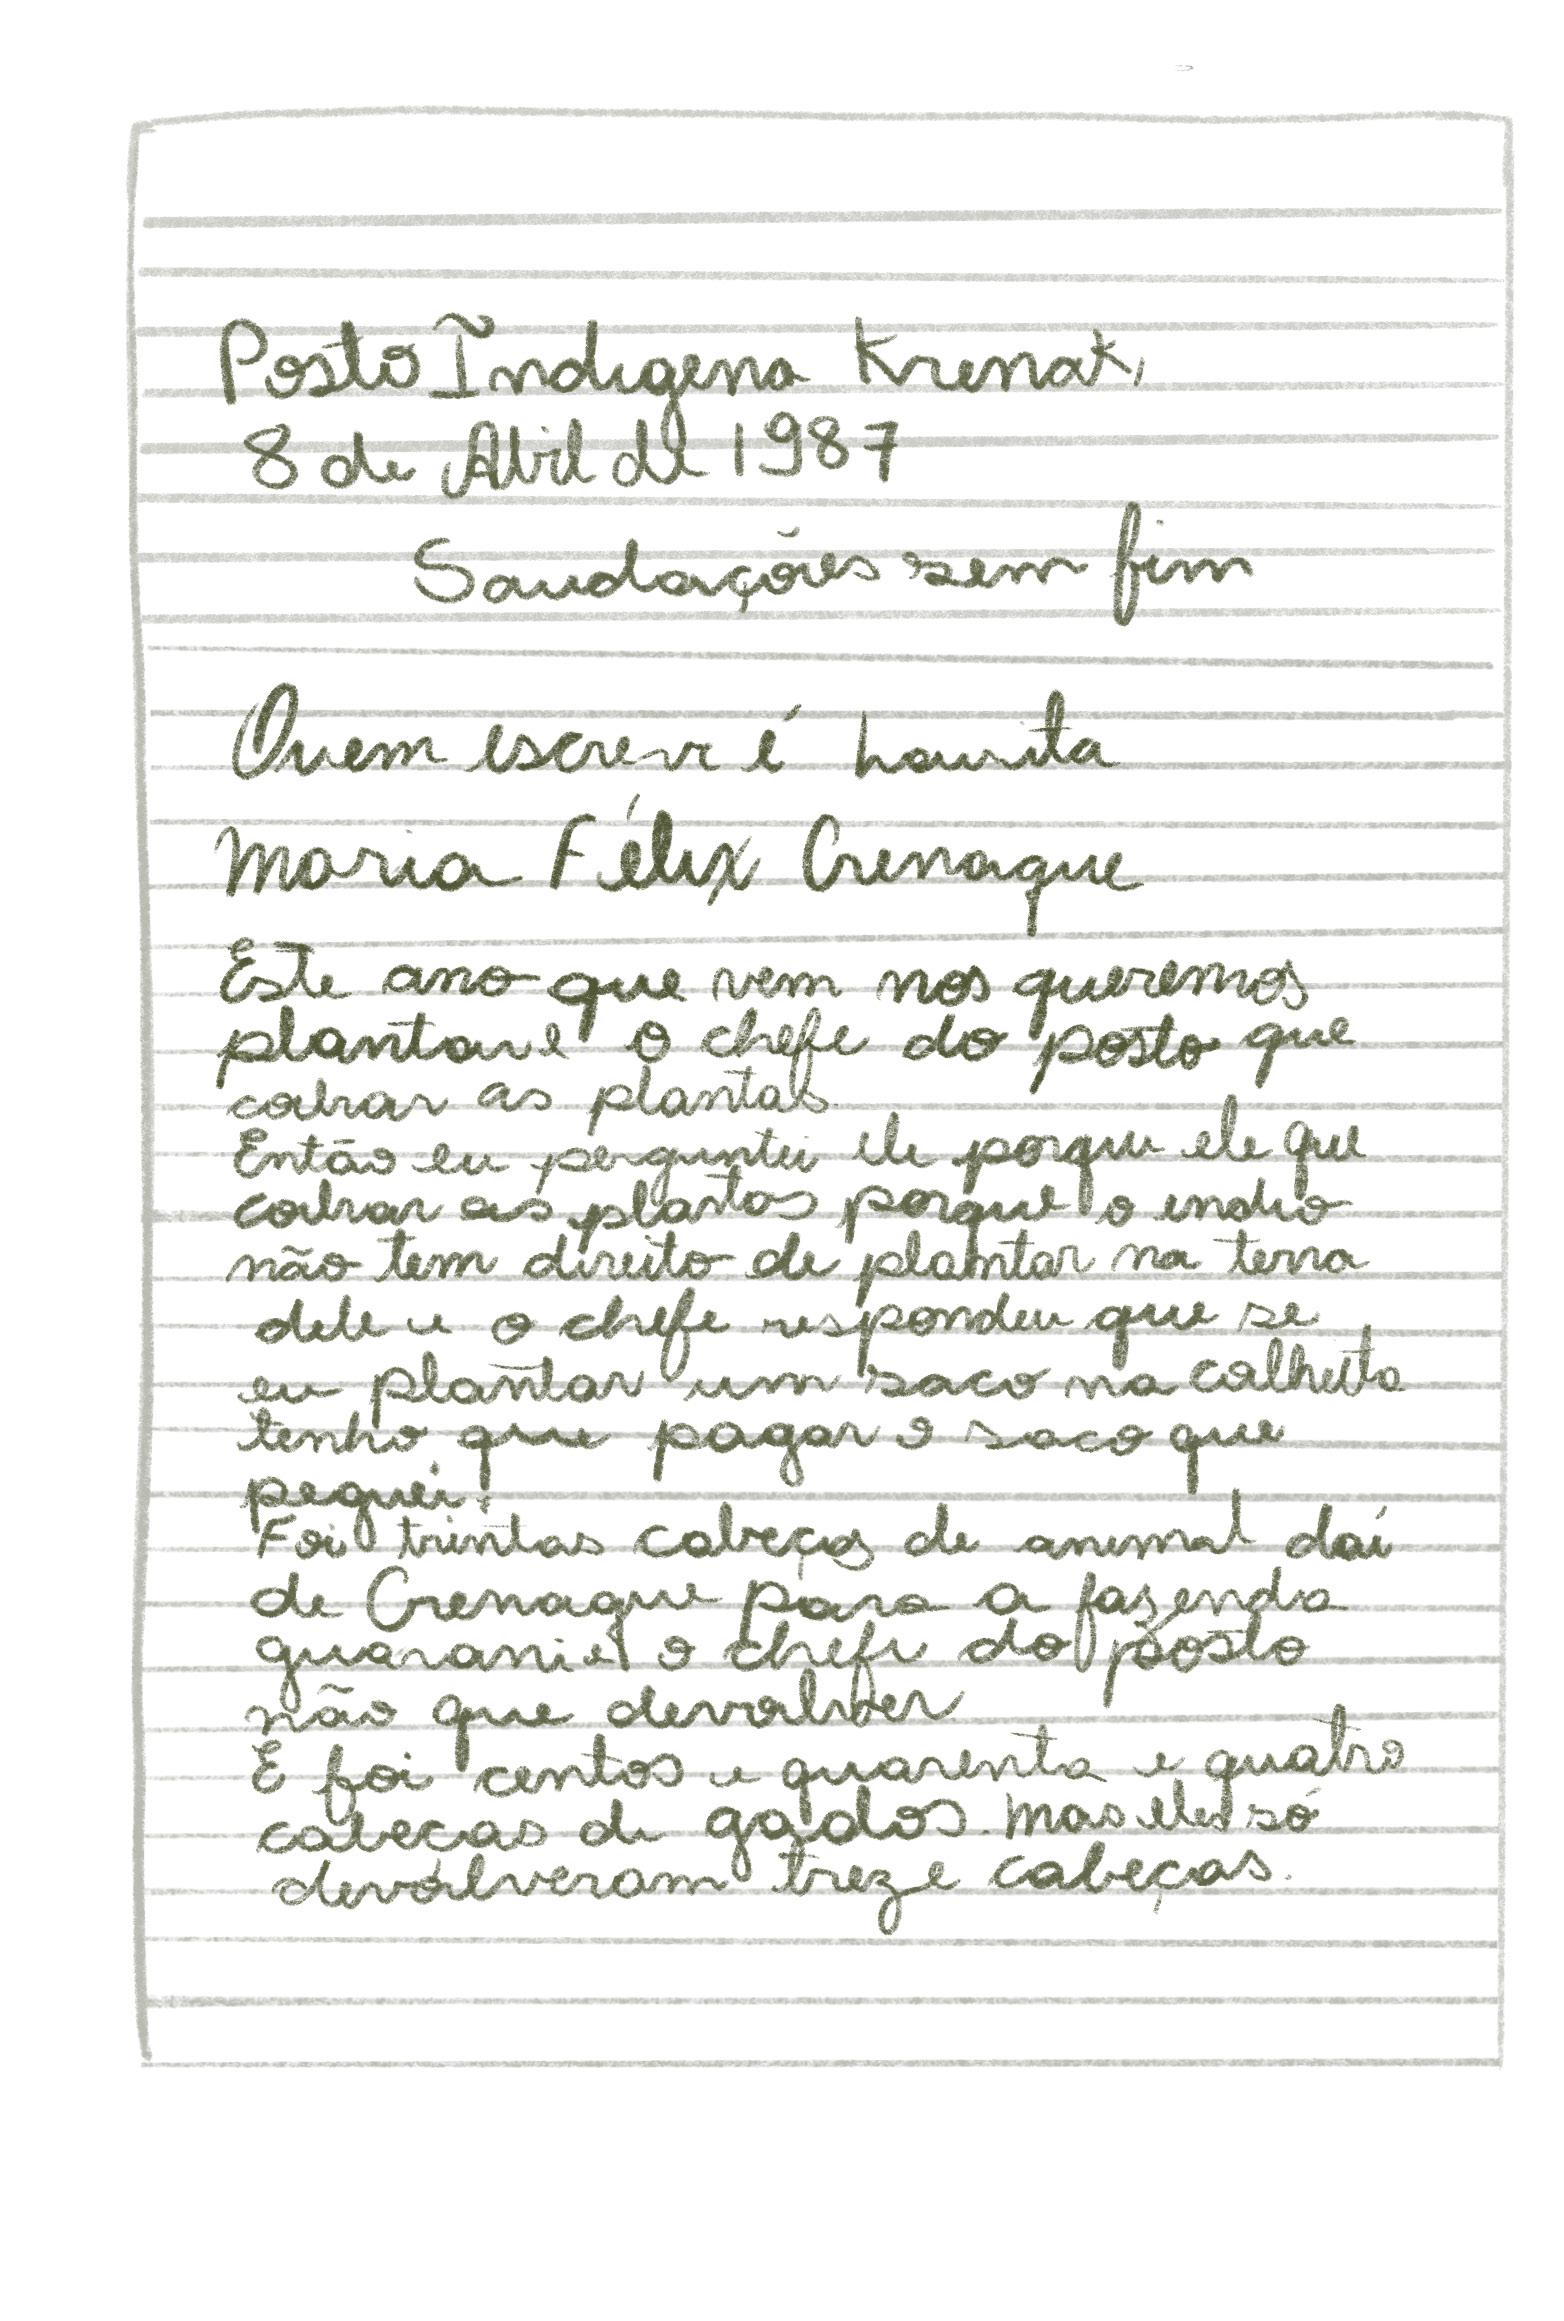 Posto Índigena Krenak,
8 de Abril de 1987
Saudações sem fim
Quem escreve é Laurita
Maria Félix Crenaque
Este ano que vem nos queremos
plantar e o chefe do posto que
cobrar as plantas
Então eu perguntei ele porque ele que
cobrar as plantas porque o indio
não tem direito de plantar na terra
dele e o chefe respondeu que se
eu plantar um saco na colheita
tenho que pagar o saco que
peguei!
Foi trintas cabeças de animal daí
de Crenaque para a fazenda
guarani e o chefe do posto
não que devolver
E foi centos e quarenta e quatro
cabecas de gados. mas eles só
devolveram treze cabeças.